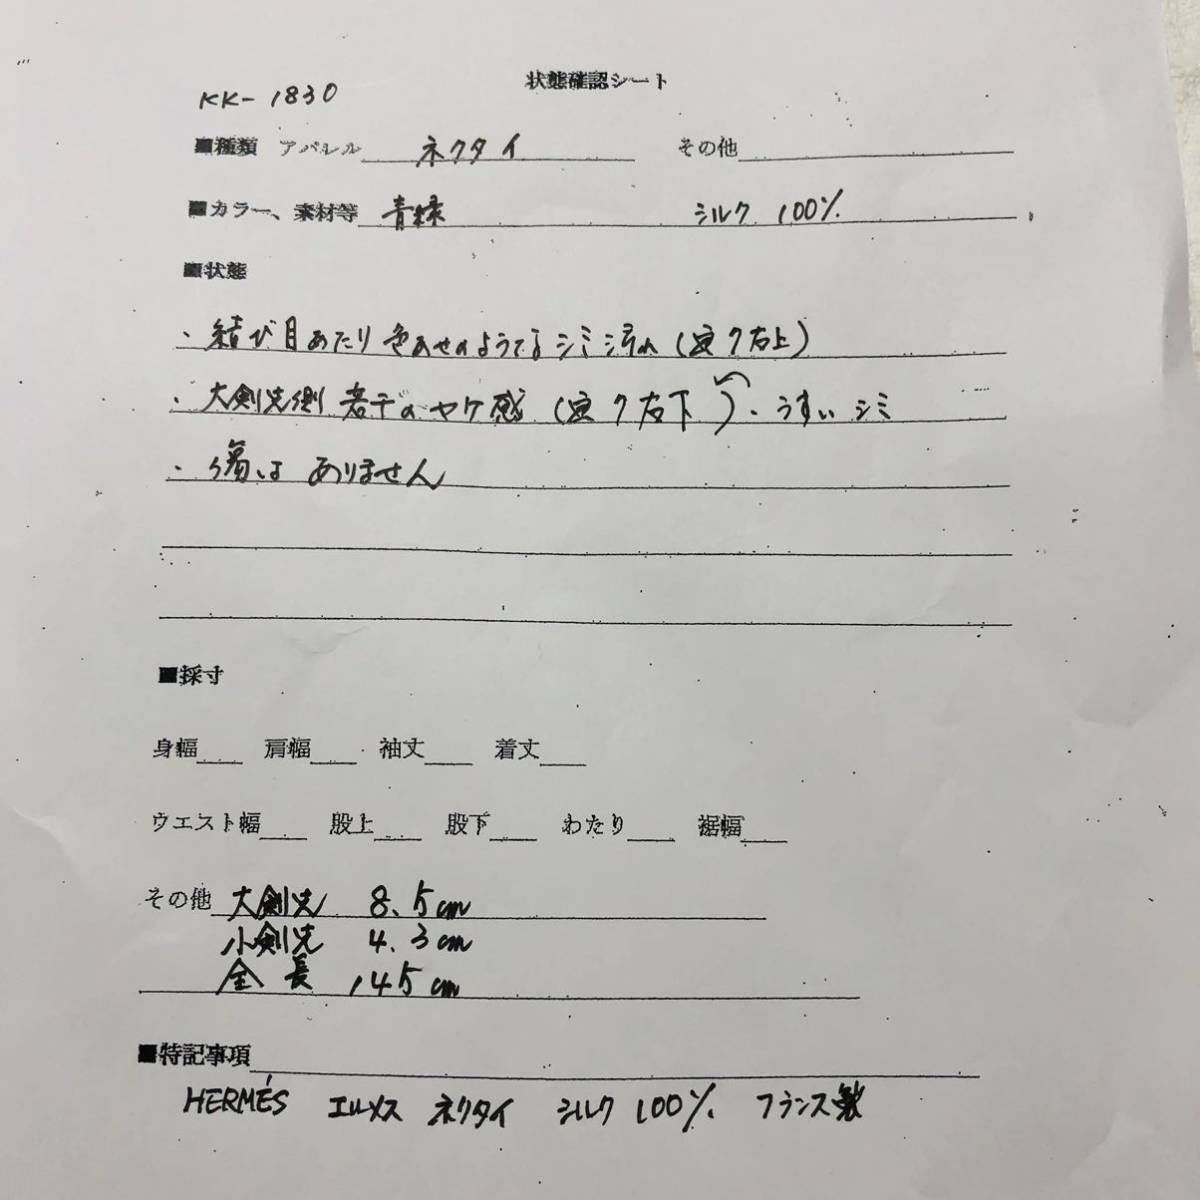 状態確認シート
KK-1830
■種類 アパレル ネクタイ その他
■カラー、素材等 青緑 シルク 100%
■状態
・結び目あたり色あせのようなシミ汚れ(定ク右上)
・大剣先側 若干のヤケ感(定ク右下)・うすいシミ
・傷はありません
■採寸
身幅 肩幅 袖丈 着丈
ウエスト幅 股上 股下 わたり 裾幅
その他 大剣先 8.5cm
小剣先 4.3cm
全長 145cm
■特記事項
HERMÉS エルメス ネクタイ シルク 100% フランス製